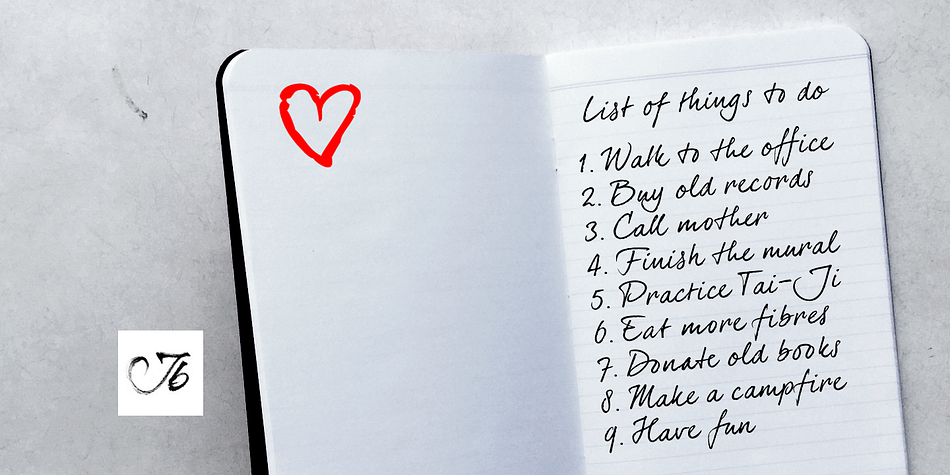 List of things to do
1. Walk to the office
2. Buy old records
3. Call mother
4. Finish the mural
5. Practice Tai-Ji
6. Eat more fibres
7. Donate old books
8. Make a campfire
9. Have fun